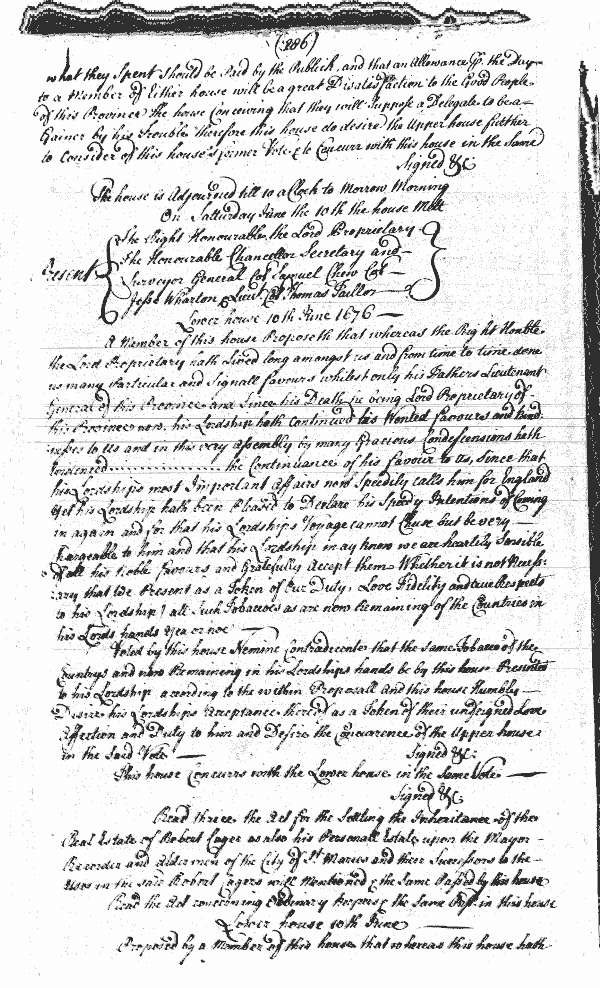 (286)
what they Spent should be Paid by the Publick, and that an Allowance P the Day
to a Member of Either house will be a great Disatisfaction to the Good People
of this Province The house Conceiving that they will Suppose a Delegate to be a
Gainer by his Trouble Therefore this house do desire the Upper house further
to Consider of this house's former Vote & to Concurr with this house in the Same
Signed &c
The house is Adjourned till 10 a Clock to Morrow Morning
On Satturday June the 10th the house Mett
The Right Honourable the Lord Proprietary
The Honourable Chancellor Secretary and
Present Surveyor General Col Samuel Chew Esqr
Jesse Wharton Lieut Col Thomas Taillor
Lower house 10th June 1676
A Member of this house Proposeth that whereas the Right Honble
the Lord Proprietary hath Lived long amongst us and from time to time done
us many Particular and Signall favours whilest only his Fathers Lieutenant
General of this Province and Since his Death in being Lord Proprietary of
this Province now his Lordship hath Continued his Wonted favours and kind
nesses to Us and in this very Assembly by many Gracious Condescensions hath
Evidenced............... the Continuance of his favour to Us, Since that
his Lordships most Important Affairs now Speedily calls him for England
Yet his Lordship hath been Pleased to Declare his Speedy Intentions of Coming
in again and for that his Lordships Voyage cannot Chuse but be very
Chargeable to him and that his Lordship may know we are heartily Sensible
of all his Noble favours and Gratefully Accept them Whether it is not Necess-
ary that We Present as a Token of Our Duty, Love Fidelity and true Respects
to his Lordship all Such Tobaccoes as are now Remaining of the Countries in
his Lords hands Yea or noe
Voted by this house Nemine Contradicente that the Same Tobacco of the
Countrys and now Remaining in his Lordships hands be by this house Presented
to his Lordship according to the within Proposall And this house Humbly
Desire his Lordships Acceptance thereof as a Token of their unfeigned Love
Affection and Duty to him and Desire the Concurence of the Upper house
in the Said Vote
Signed &c
This house Concurrs with the Lower house in the Same Vote
Signed &c
Read three the Act for the Settling the Inheritance of the
Real Estate of Robert Cager as also his Personall Estate upon the Mayor
Recorder and Aldermen of the City of St Maries and their Successors to the
Uses in the said Robert Cagers will Mentioned & the Same Passed by this house
Read the Act concerning Ordinary Keepers & the Same Past in this house
Lower house 10th June
Proposed by a Member of this house that whereas this house hath